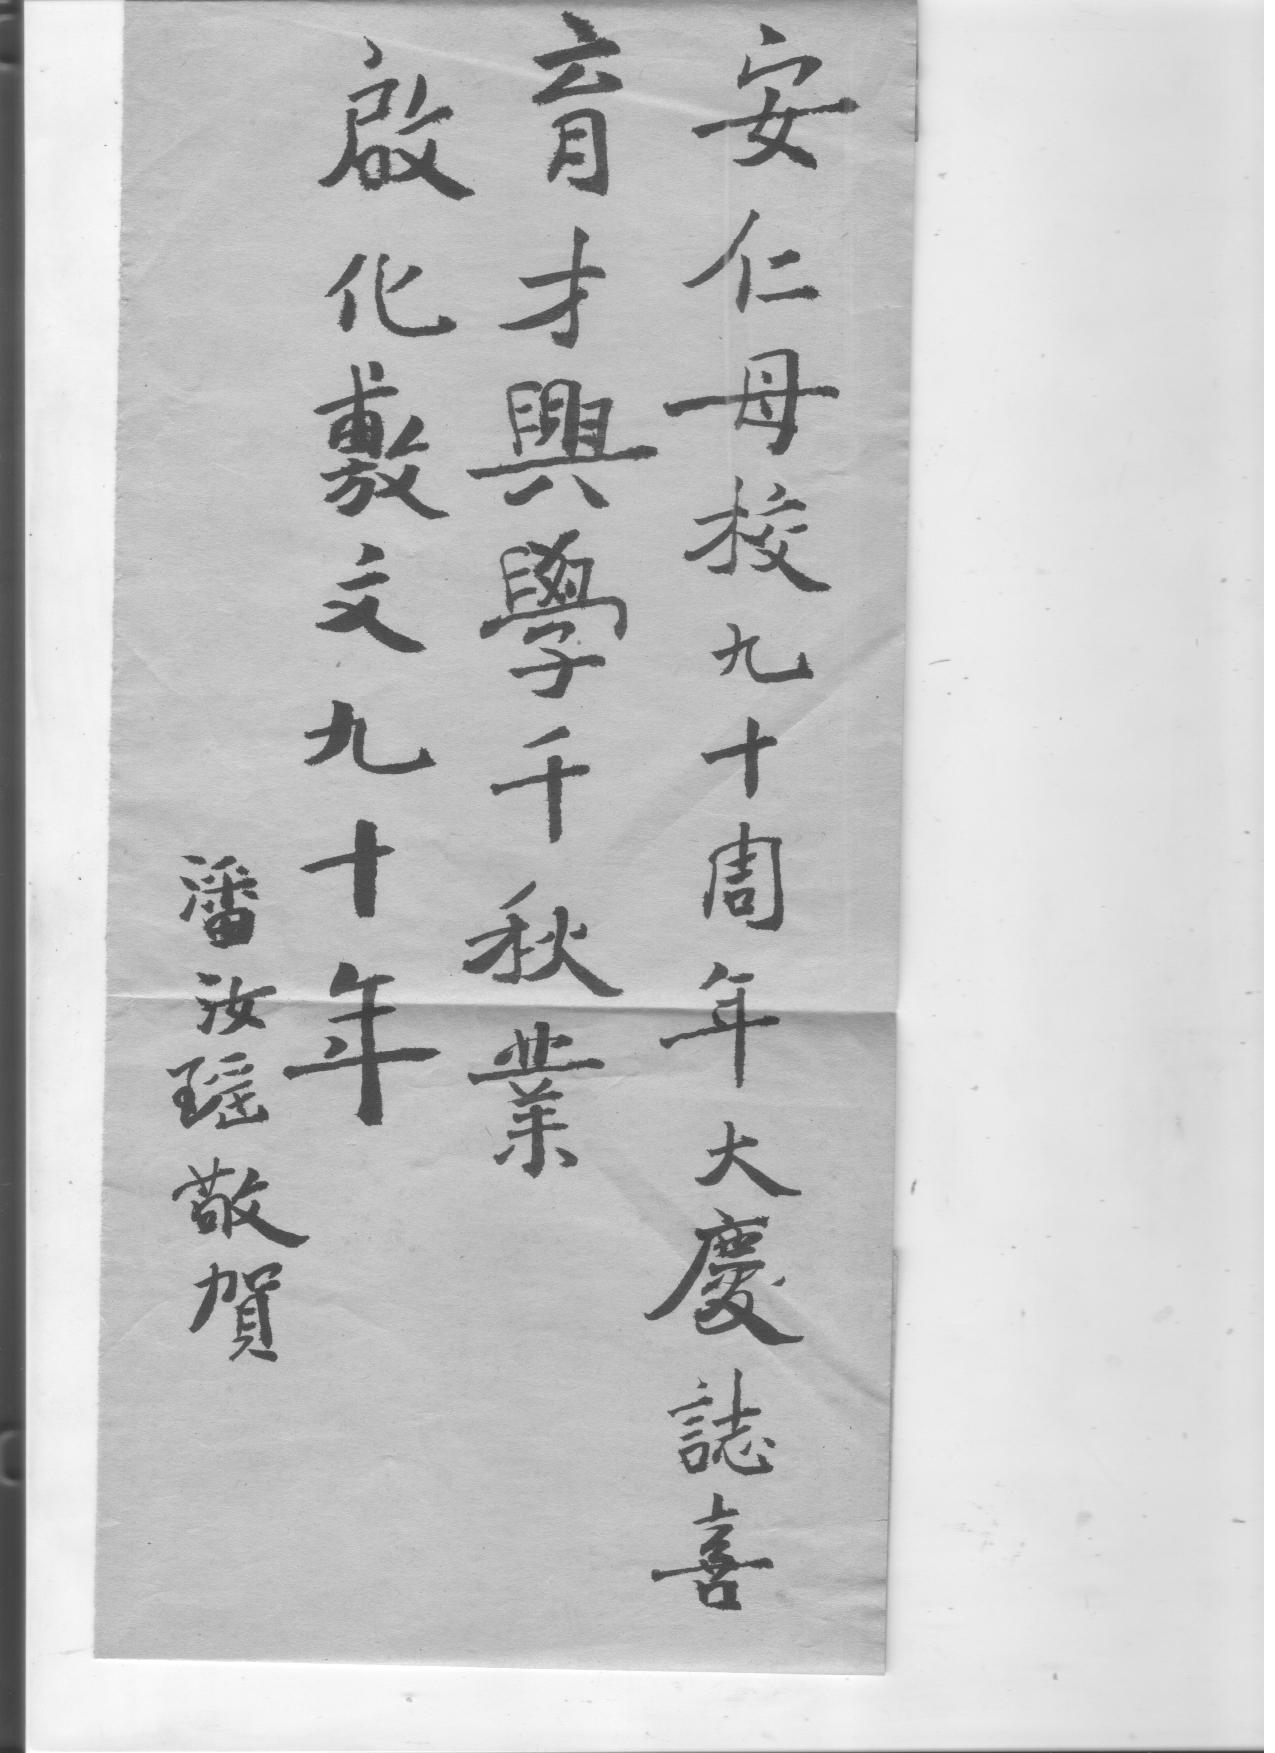 安仁母校九十周年大慶誌喜
育才興學千秋業
啟化敷文九十年
潘汝瑶敬賀